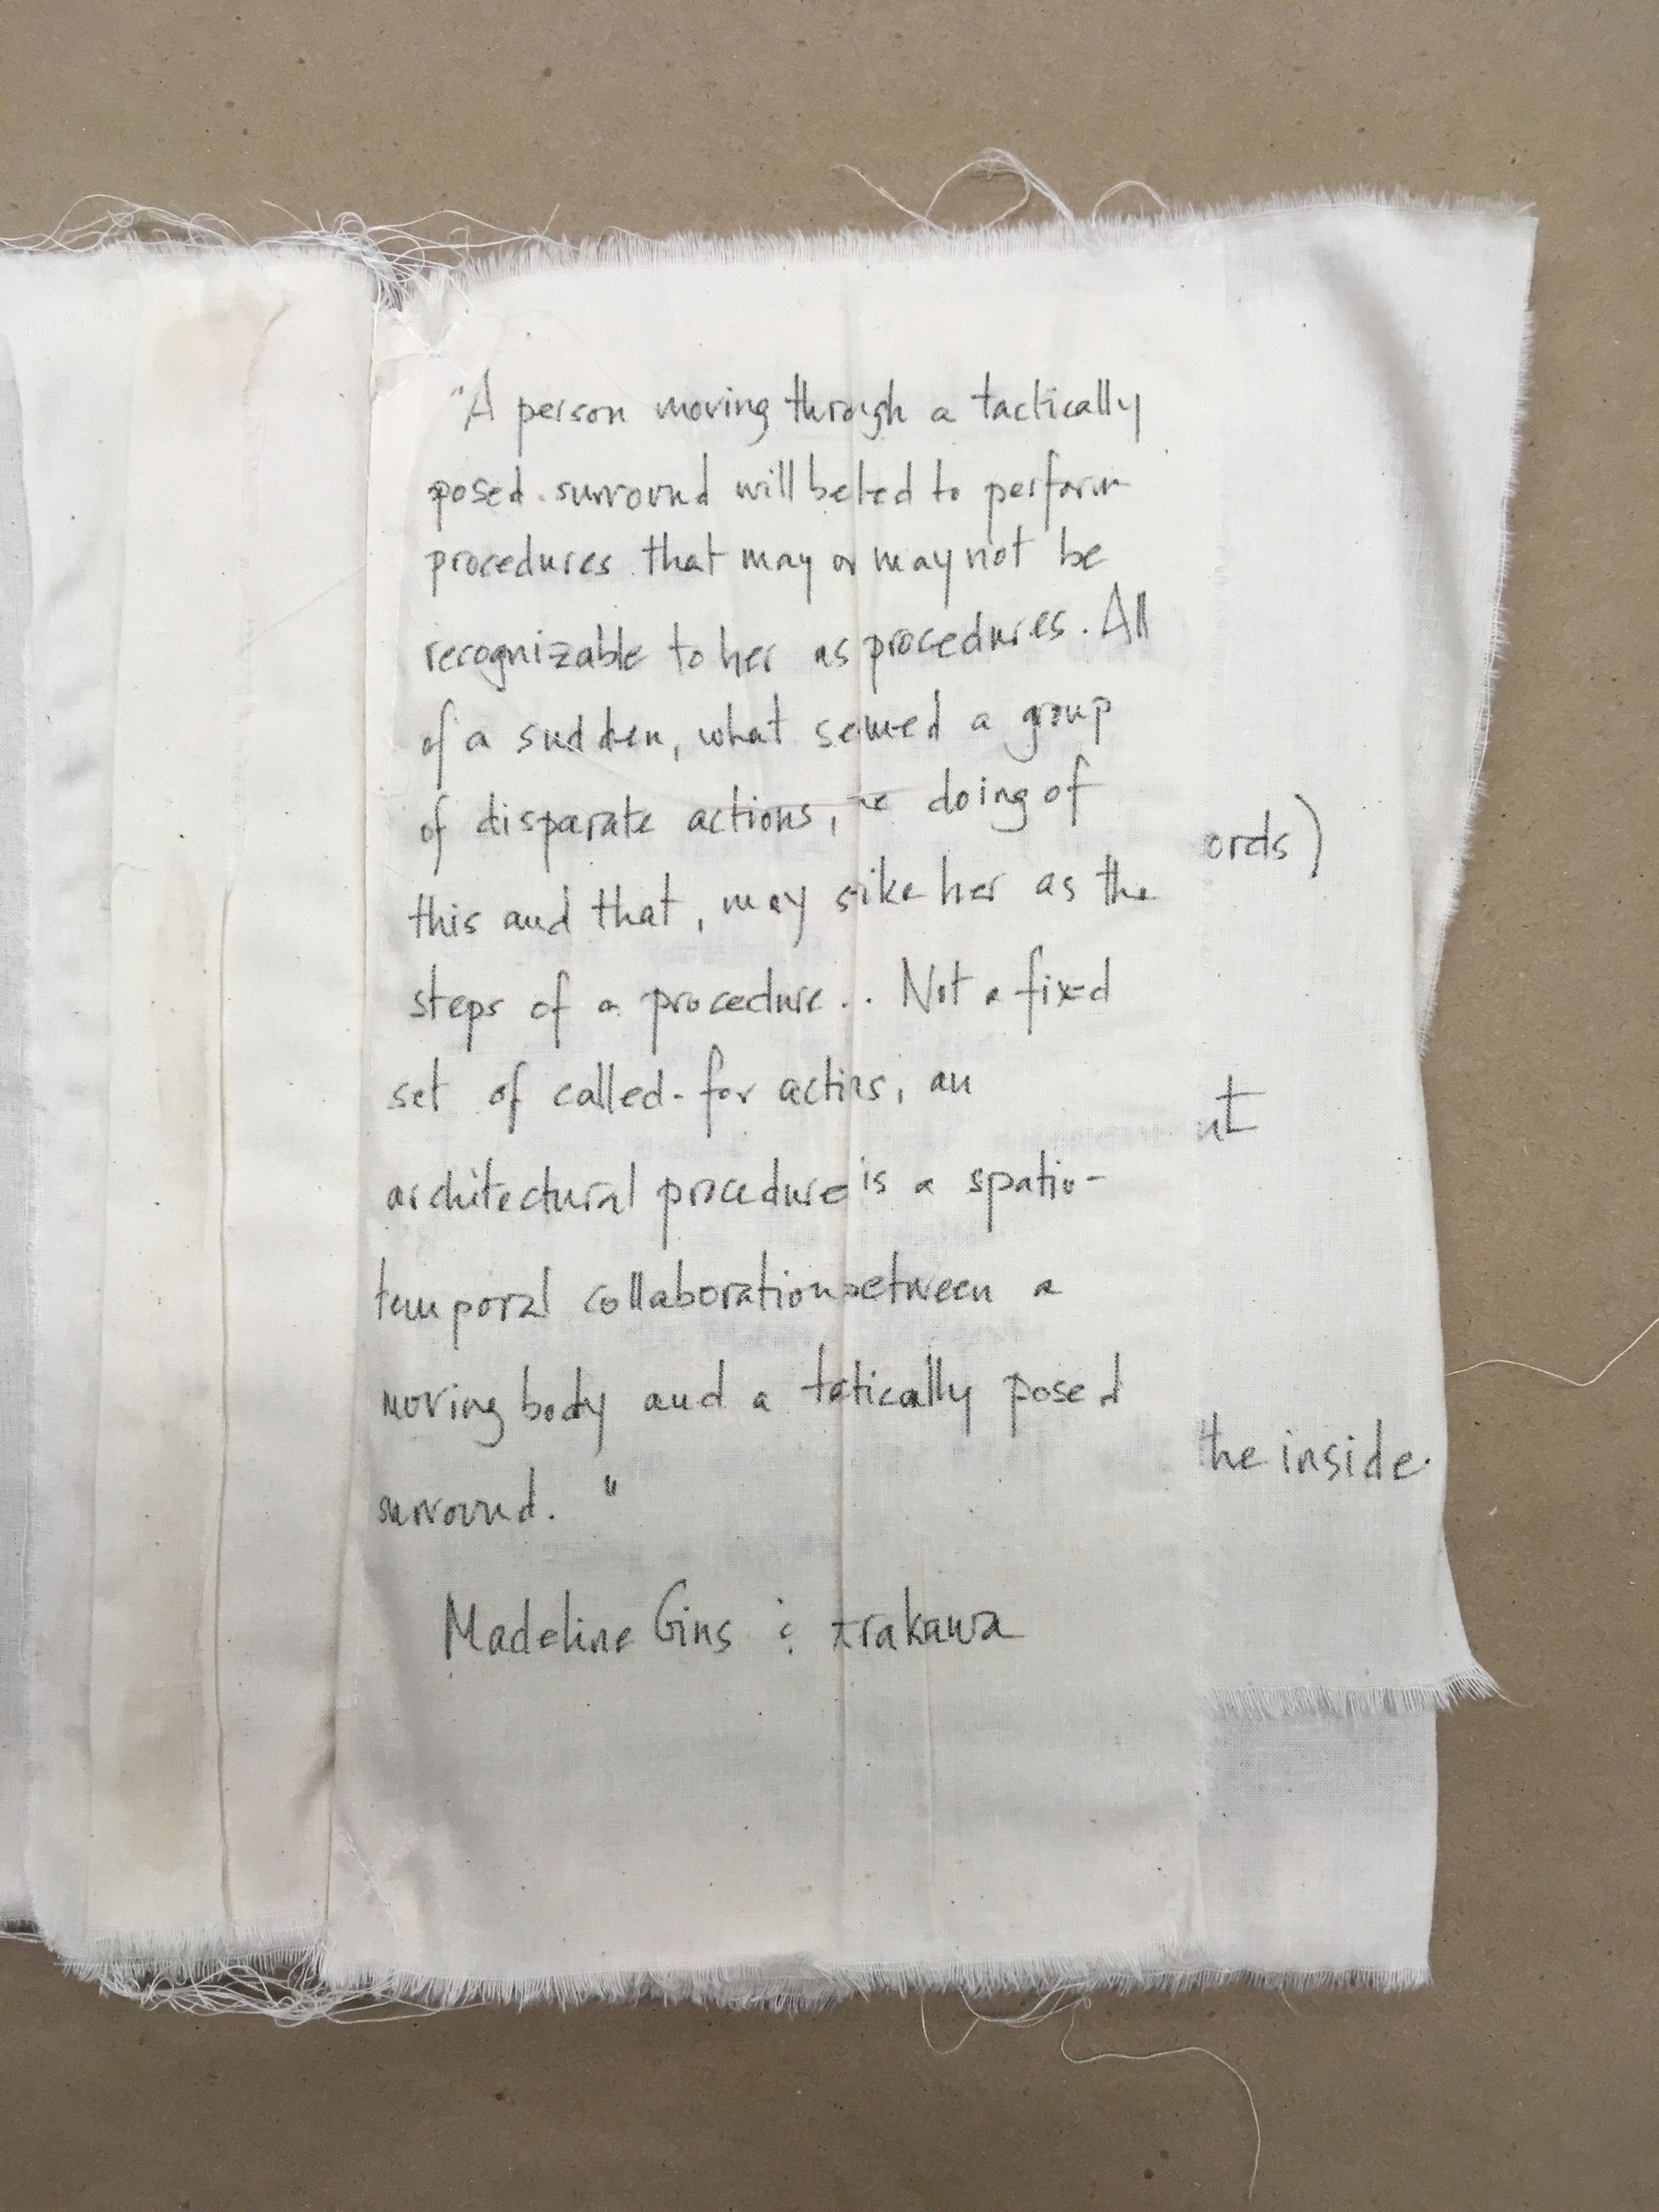 "A person moving through a tactically
posed surround will be led to perform
procedures that may or may not be
recognizable to her as procedures. All
of a sudden, what seemed a group
of disparate actions, doing of
this and that, may sike her as the
steps of a procedure.. Not a fixed
set of called-for actins, an
architectural procedure is a spatio-
temporal collaboration between a
moving body and a tatically posed
surround. "
Madeline Gins & Arakawa
ords)
nt
the inside.